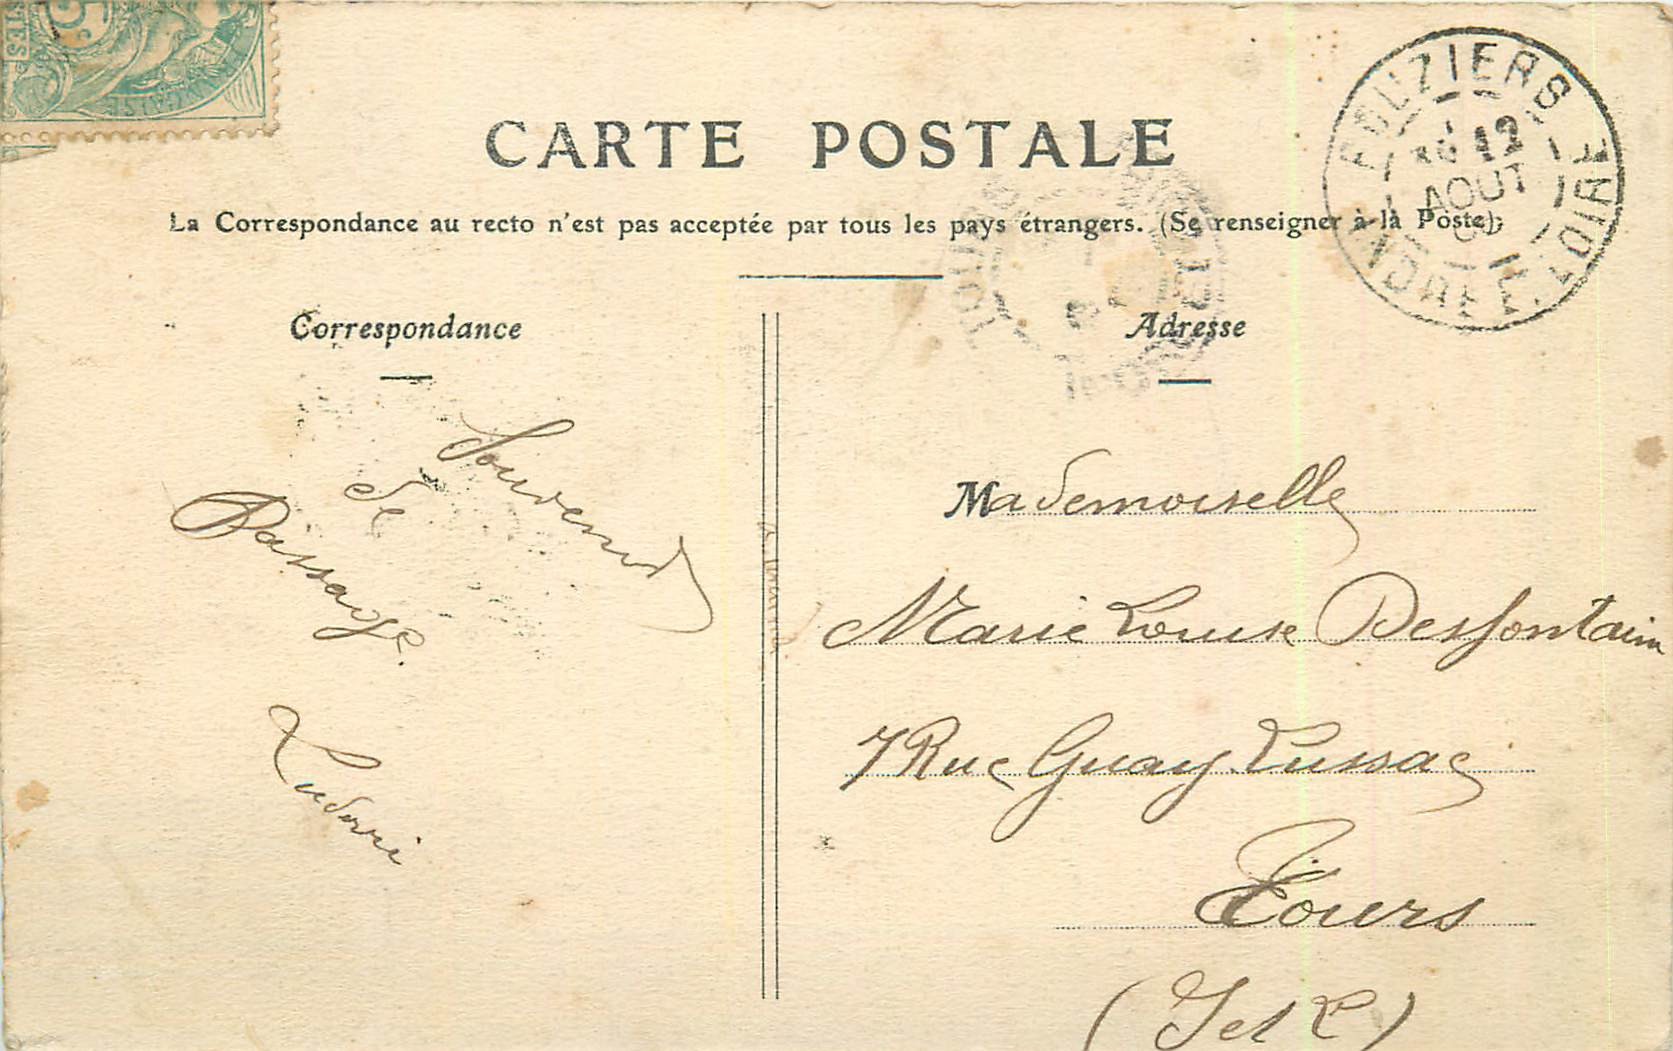 CARTE POSTALE
La Correspondance au recto n'est pas acceptée par tous les pays étrangers. (Se renseigner à la Poste);
Correspondance
Souvenir
de
Passage.
Ludovic
Adresse
Mademoiselle
Marie Louise Desfontain
7 Rue Guay Lussac
Tours
(I et L)
12
AOUT
INDRE ET LOIRE
TOURS